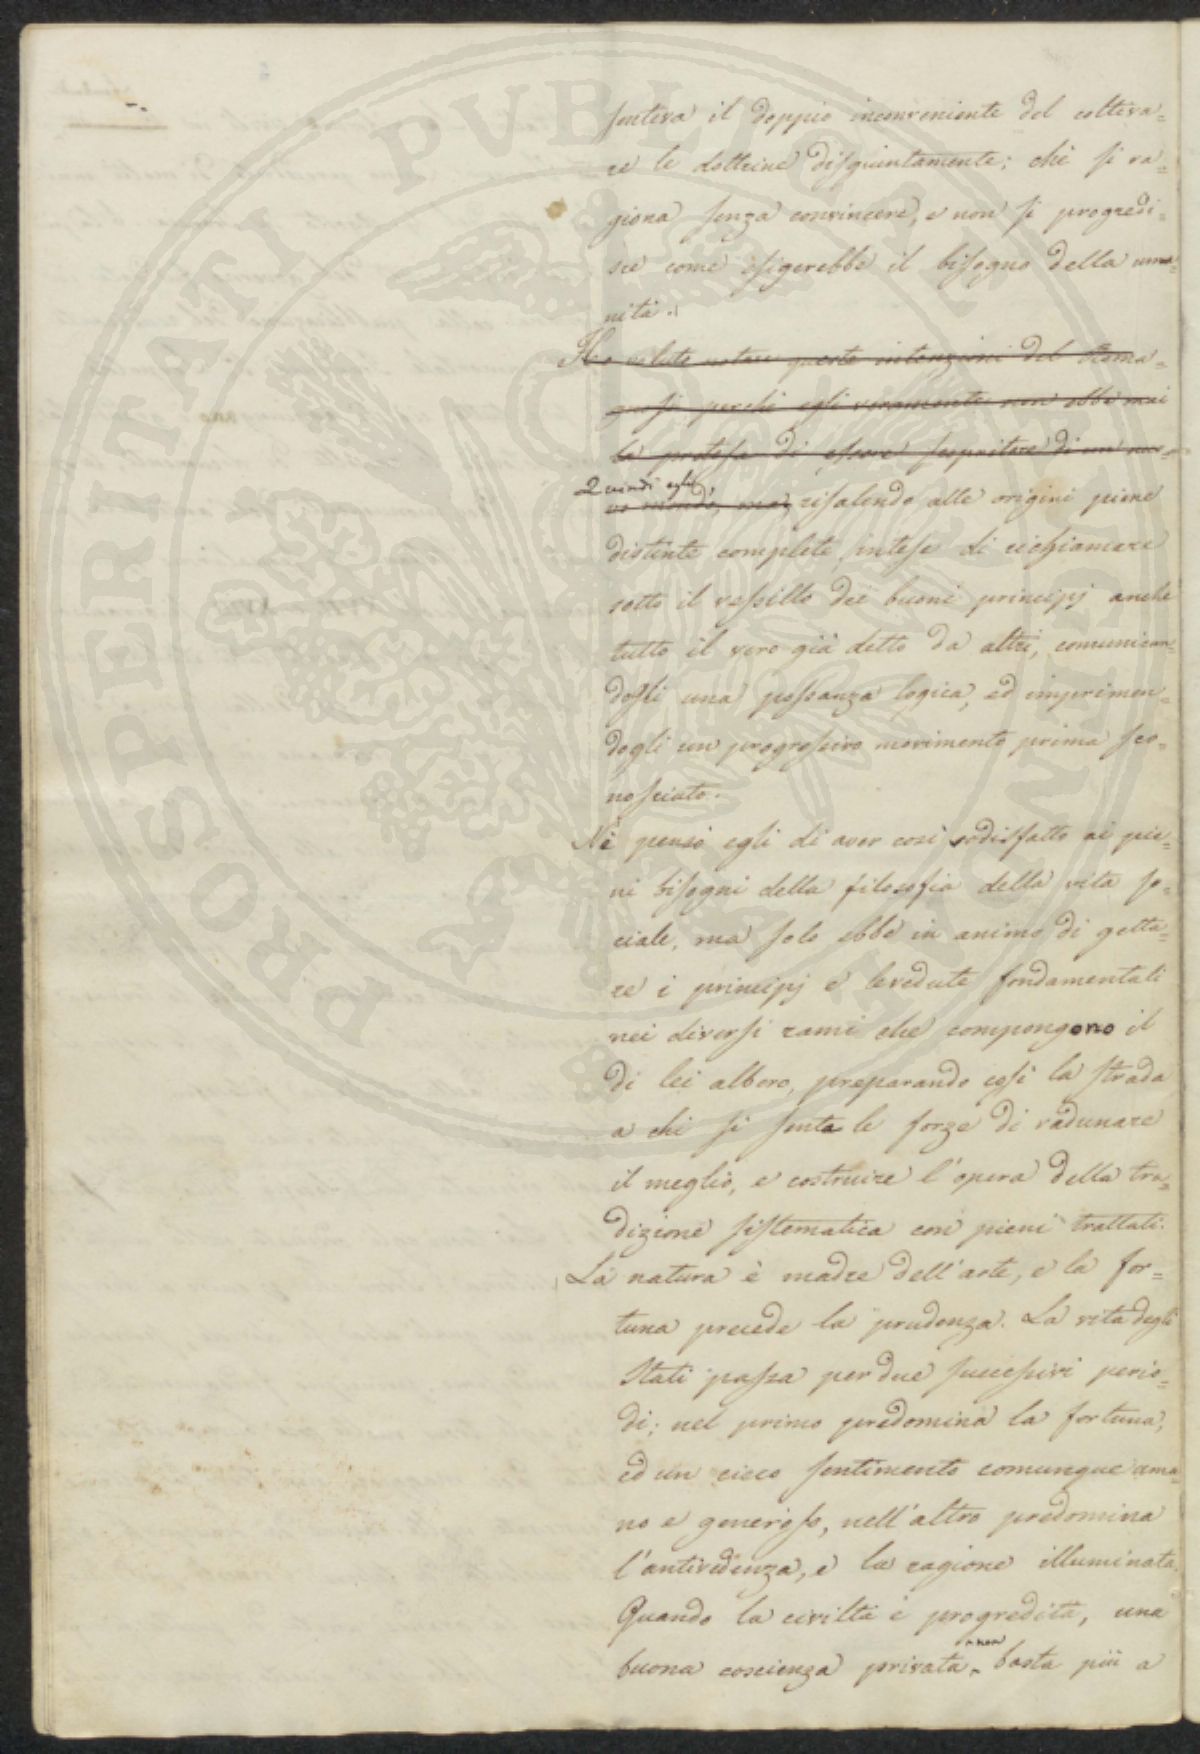 senteva il doppio inconveniente del coltiva=
re le dottrine disgiuntamente; chè si ra=
giona senza convincere, e non si progredi=
sce come esigerebbe il bisogno della uma=
nità.
Ho voluto notare queste intenzioni del Roma=
gnosi perchè egli veramente non ebbe mai
la pretesa di essere scopritore di un nuo=
Quindi egli
vo mondo, ma, risalendo alle origini piene
distinte complete, intese di richiamare
sotto il vessillo dei buoni principj anche
tutto il vero già detto da altri, comunican=
dogli una possanza logica, ed imprimen=
dogli un progressivo movimento prima sco=
nosciuto.
Nè pensò egli di aver così sodisfatto ai pie=
ni bisogni della filosofia della vita so=
ciale, ma solo ebbe in animo di getta=
re i principj e le vedute fondamentali
nei diversi rami che compongono il
di lei albero, preparando così la strada
a chi si senta le forze di radunare
il meglio, e costruire l'opera della tra=
dizione sistematica con pieni trattati.
La natura è madre dell'arte, e la for=
tuna precede la prudenza. La vita degli
Stati passa per due successivi perio=
di; nel primo predomina la fortuna,
ed un cieco sentimento comunque uma=
no e generoso, nell'altro predomina
l'antivedenza, e la ragione illuminata.
Quando la civiltà è progredita, una
buona coscienza privata non basta più a
PROSPERITATI PVBLICAE AVGENDAE